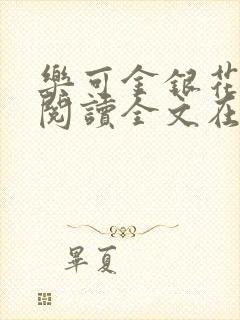 樂可金銀花
閱讀全文在
畢夏